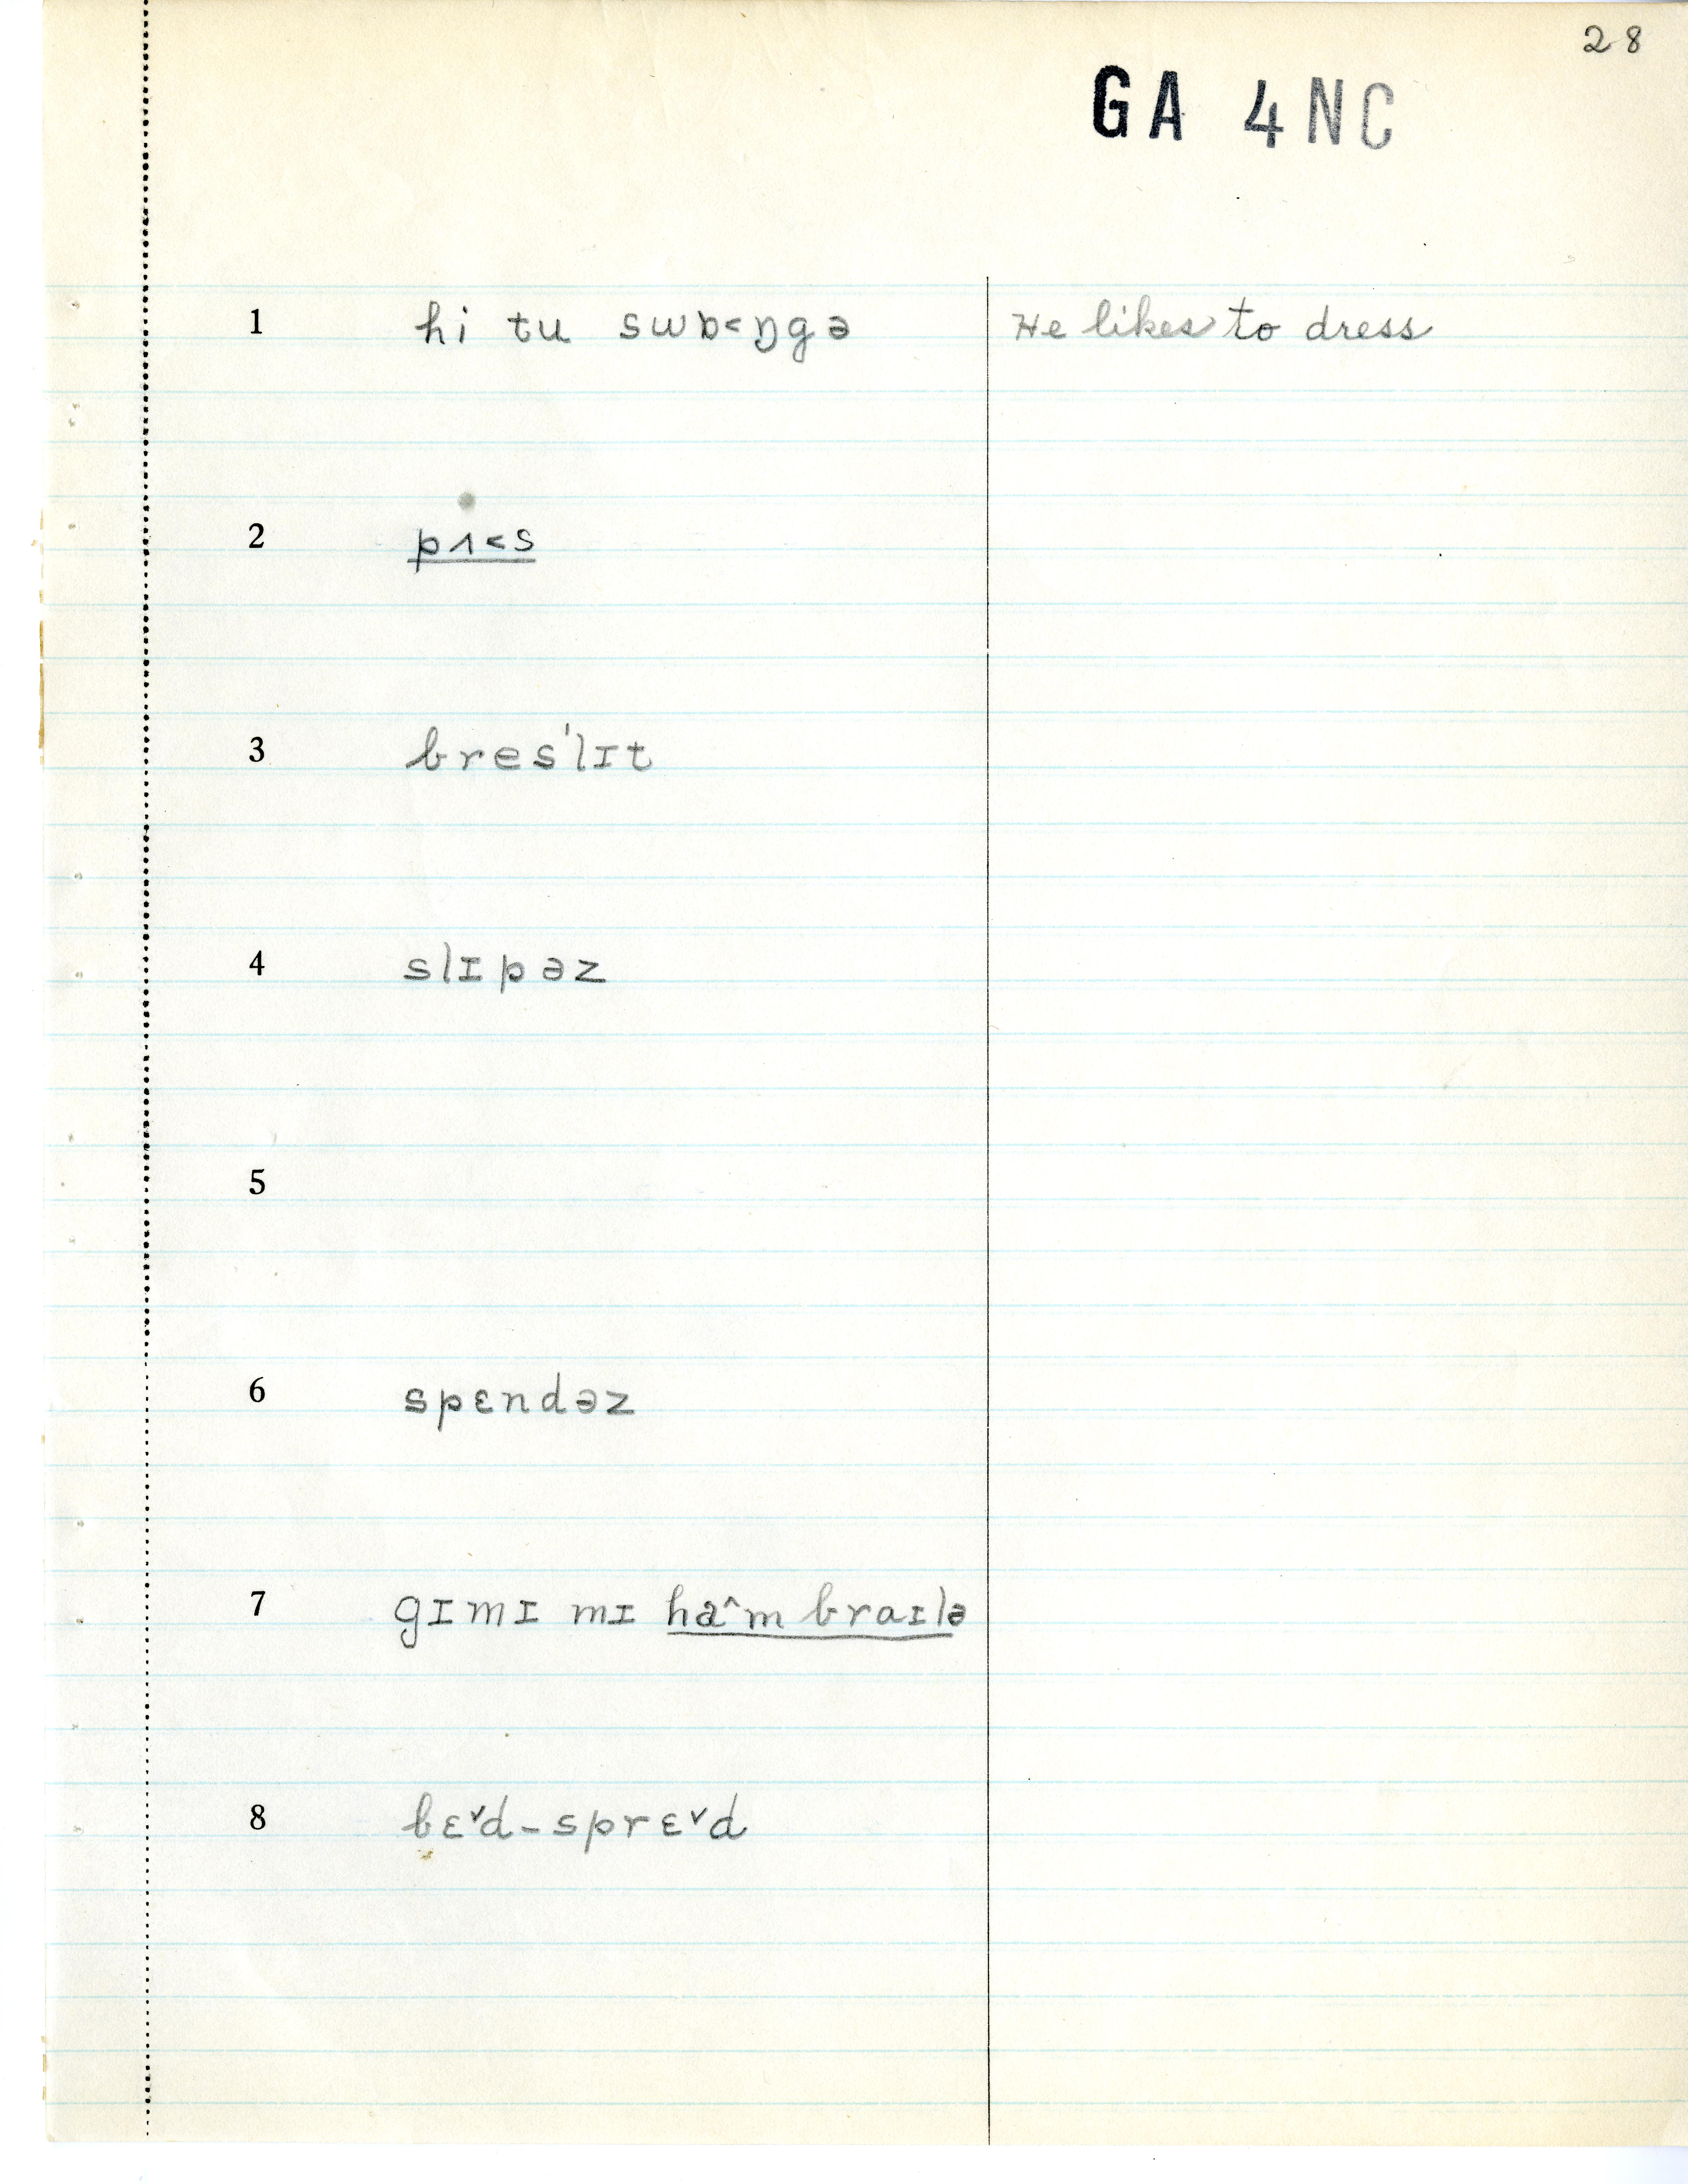 28
GA 4NC
1 hi tu swɒ˂ŋgə He likes to dress
2 pɜ˂s
3 bres'lɪt
4 slɪpəz
5
6 spɛndəz
7 gɪmɪ mɪ ha^m braɪlə
8 bɛ˅d-sprɛ˅d